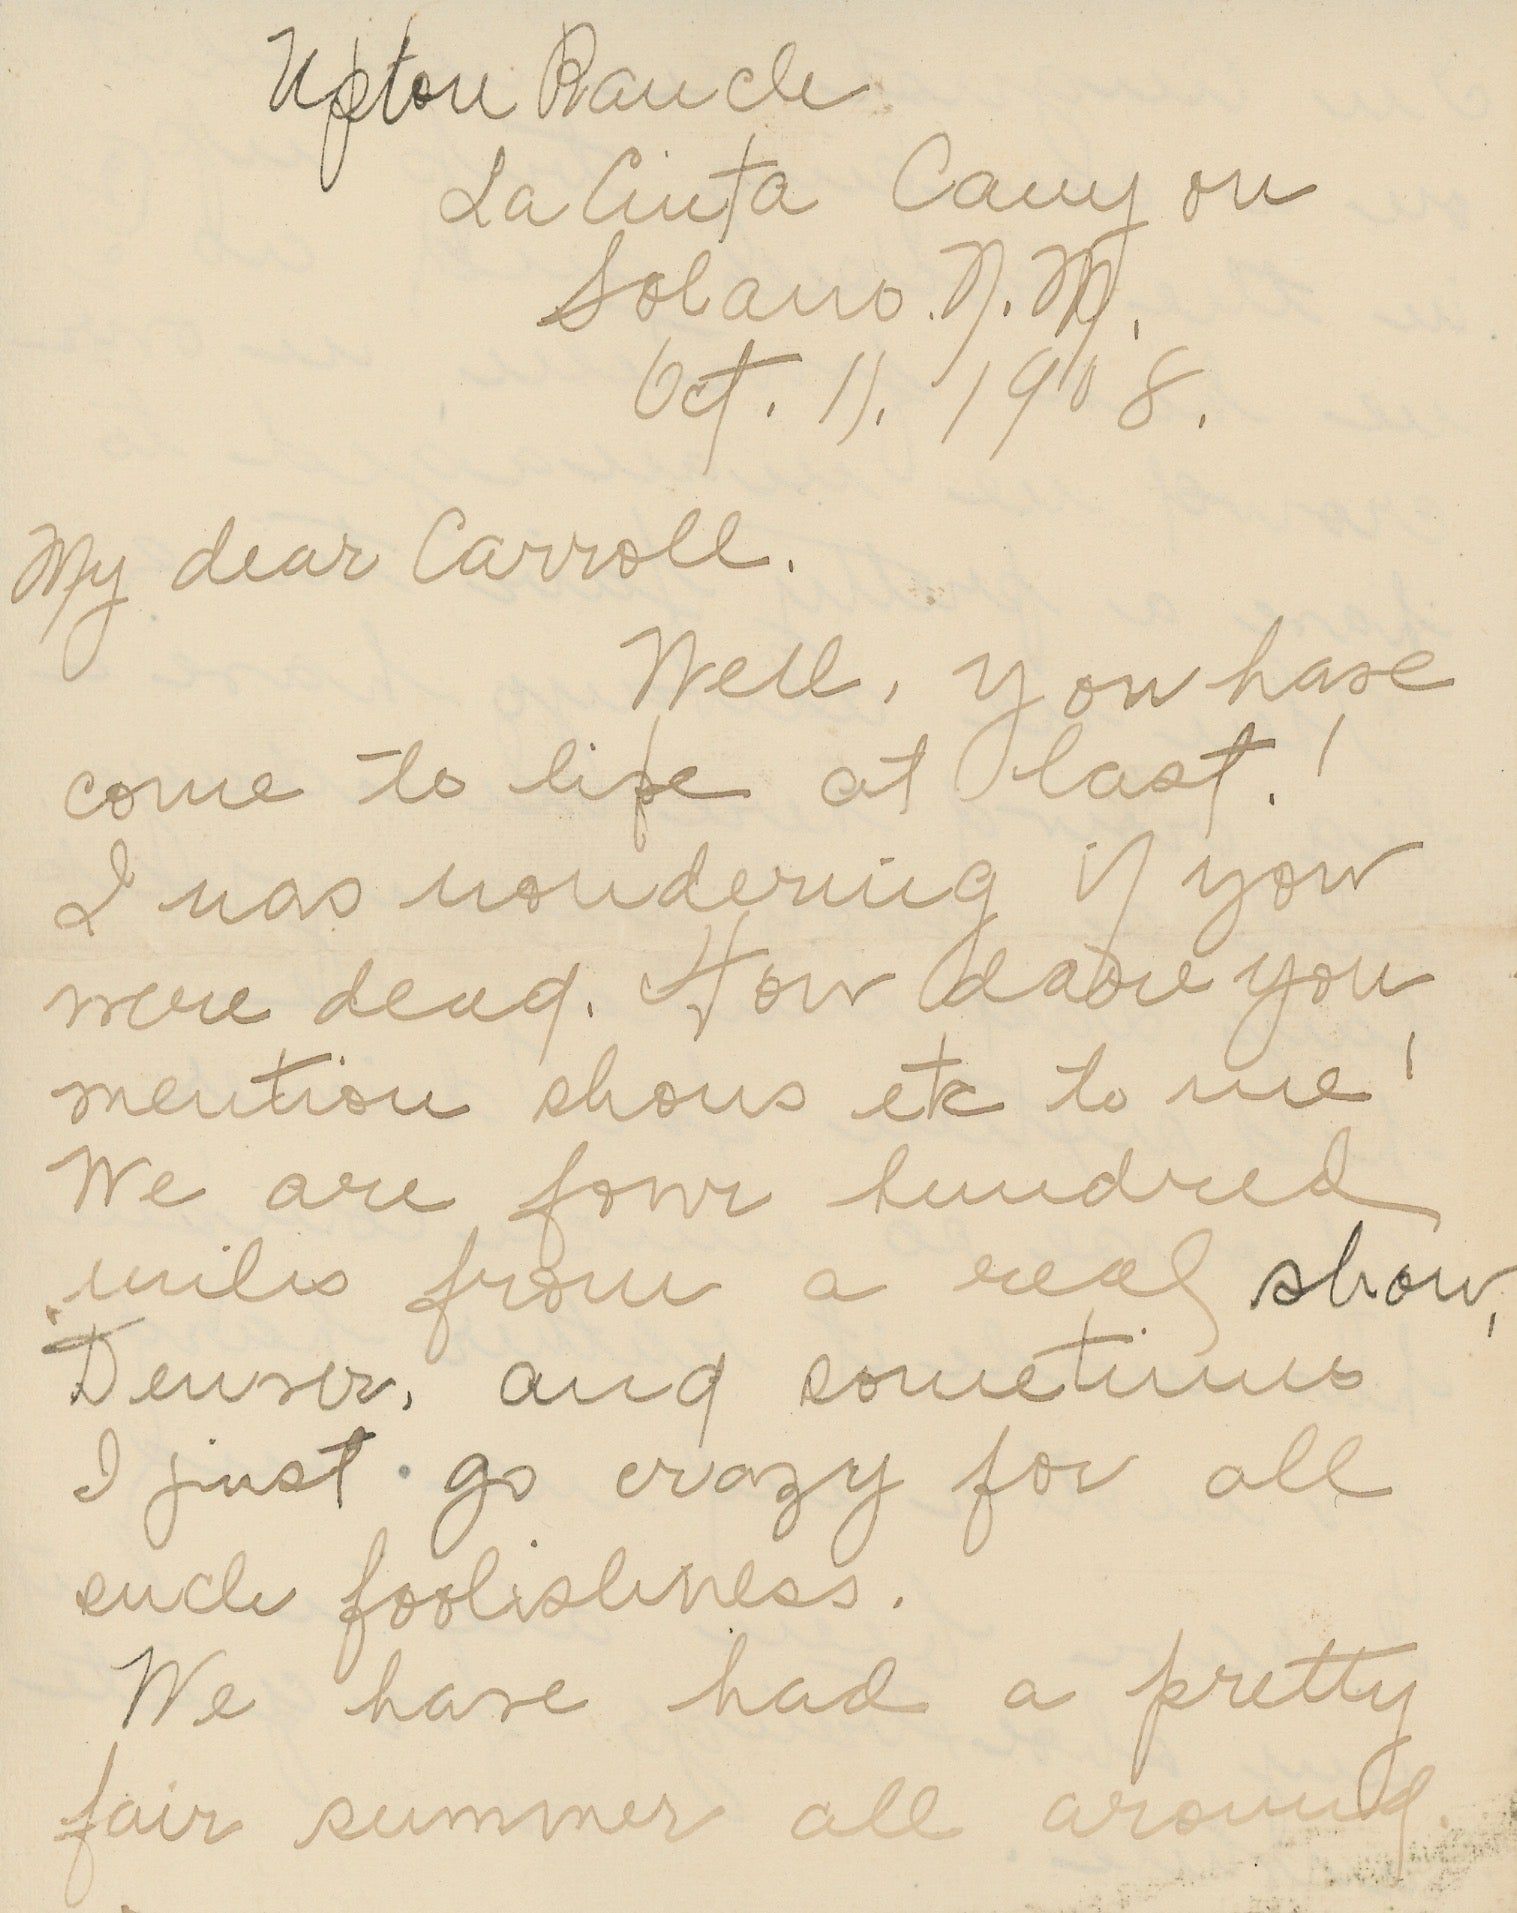 Upton Ranch
La Cinta Canyon
Solano. N. M.
Oct. 11. 1908.
My dear Carroll.
Well, you have
come to life at last!
I was wondering if you
were dead. How dare you
mention shows etc to me!
We are four hundred
miles from a real show,
Denver, and sometimes
I just go crazy for all
such foolishness.
We have had a pretty
fair summer all around.